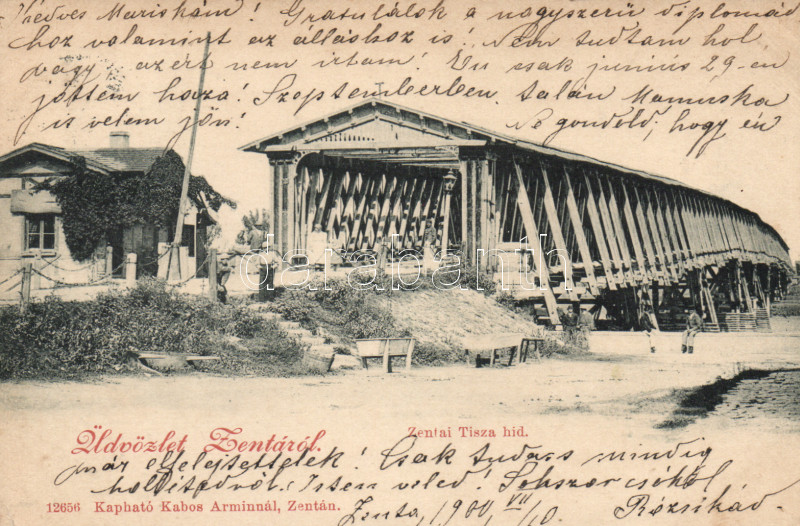 Kedves Mariskám! Gratulálok a nagyszerü diplomád
hoz valamint az álláshoz is! Nem tudtam hol
vagy azért nem irtam! Én csak junius 29-én
jöttem haza! Szeptemberben talán Mamuska
is velem jön! Ne gondold, hogy én
darabanth
Üdvözlet Zentáról.
Zentai Tisza hid.
már elfelejtettelek! Csak tudass mindig
hollétedről. Isten veled. Sokszor csókol
12656 Kapható Kabos Arminnál, Zentán.
Zenta, 1900 VII/10. Rózsikád.